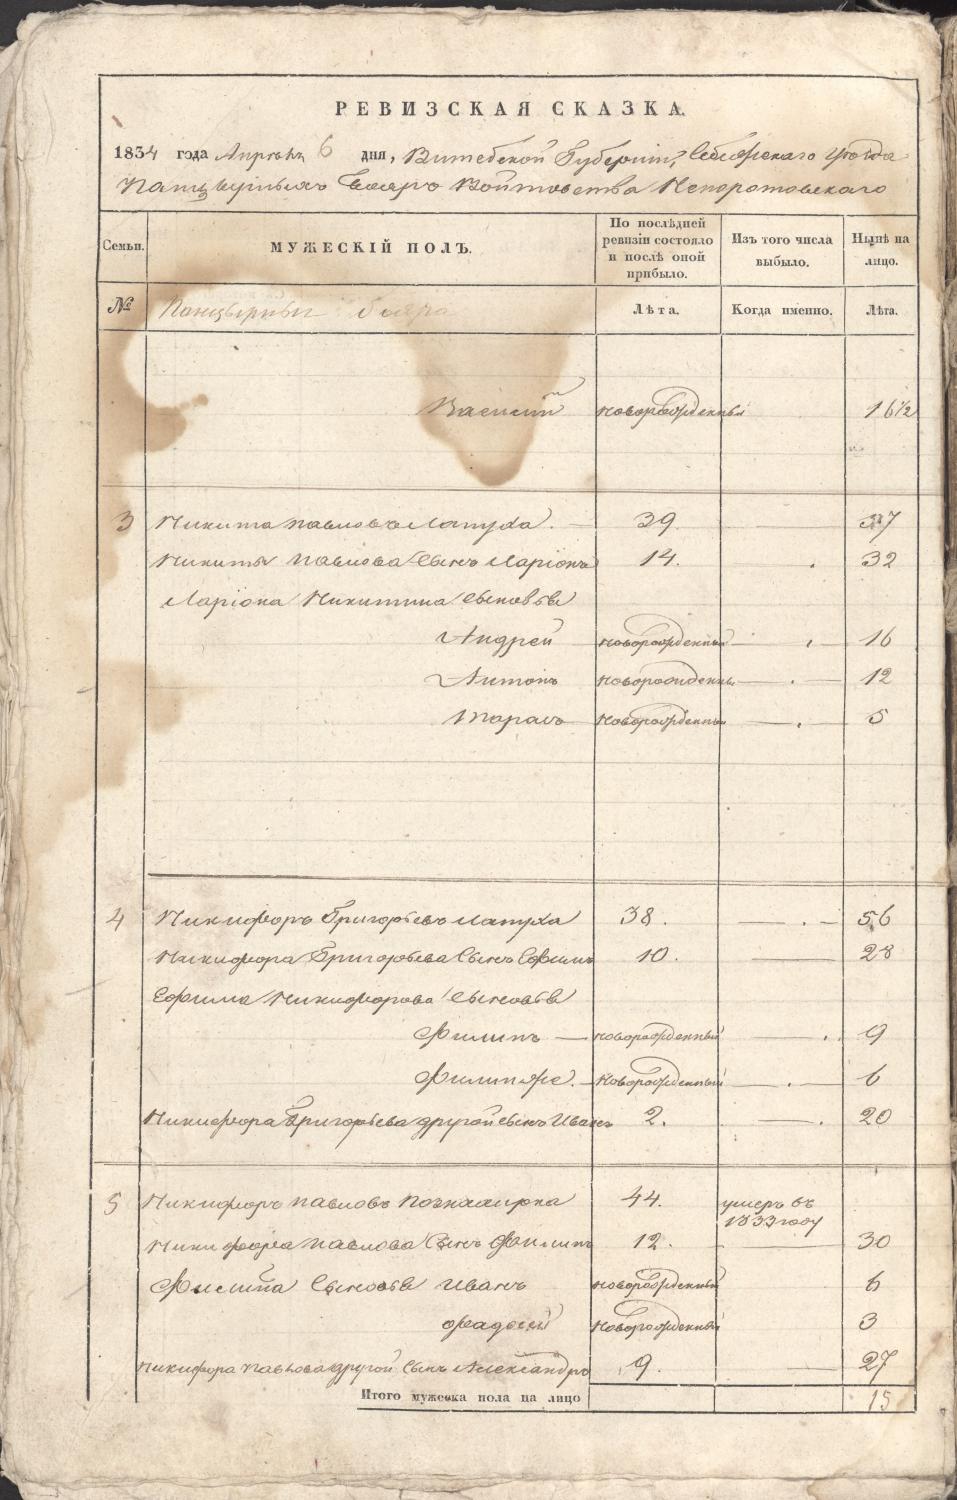 РЕВИЗСКАЯ СКАЗКА.
1834 года Апрѣль 6 дня, Витебской Губерніи, Себежскаго уѣзда
Панцырныхъ Бояръ Войтовства Непоротовскаго
Семьи. МУЖЕСКІЙ ПОЛЪ. По послѣдней ревизіи состояло и послѣ оной прибыло. Изъ того числа выбыло. Нынѣ на лицо.
№ Панцырныи бояра Лѣта. Когда именно. Лѣта.
Василій новорожденный 16½
3 Никита Павловъ Лапуха. 39. 57
Никиты Павлова Сынъ Ларіонъ 14. 32
Ларіона Никитина Сыновья
Андрей новорожденный 16
Антонъ новорожденны 12
Тарасъ новорожденный 5
4 Никифоръ Григорьевъ Лапуха 38. 56
Никифора Григорьева Сынъ Ефимъ 10. 28
Ефима Никифорова Сыновья
Филипъ новорожденный 9
новорожденный 6
Никифора Григорьева другой сынъ Иванъ 2. 20
5 Никифоръ Павловъ 44. умеръ въ 1833 году
Никифора Павлова Сынъ Филипъ 12. 30
Филипа Сыновья Иванъ новорожденный 6
Фадѣей новорожденный 3
Никифора Павлова другой Сынъ Александръ 9. 27
Итого мужеска пола на лицо 15